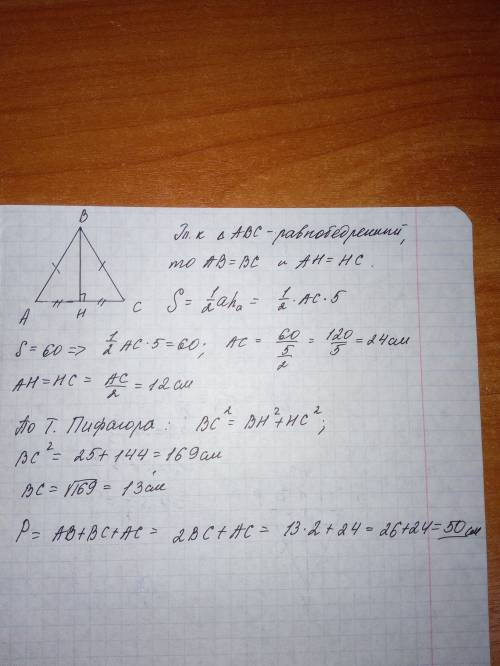 B
A H C
Т.к Δ ABC - равнобедренный,
то AB = BC и AH = HC.
S = 1/2 ah_a = 1/2 · AC · 5
S = 60 => 1/2 AC · 5 = 60; AC = 60/(5/2) = 120/5 = 24 см
AH = HC = AC/2 = 12 см
По Т. Пифагора: BC² = BH² + HC²;
BC² = 25 + 144 = 169 см
BC = √169 = 13 см
P = AB + BC + AC = 2BC + AC = 13 · 2 + 24 = 26 + 24 = 50 см